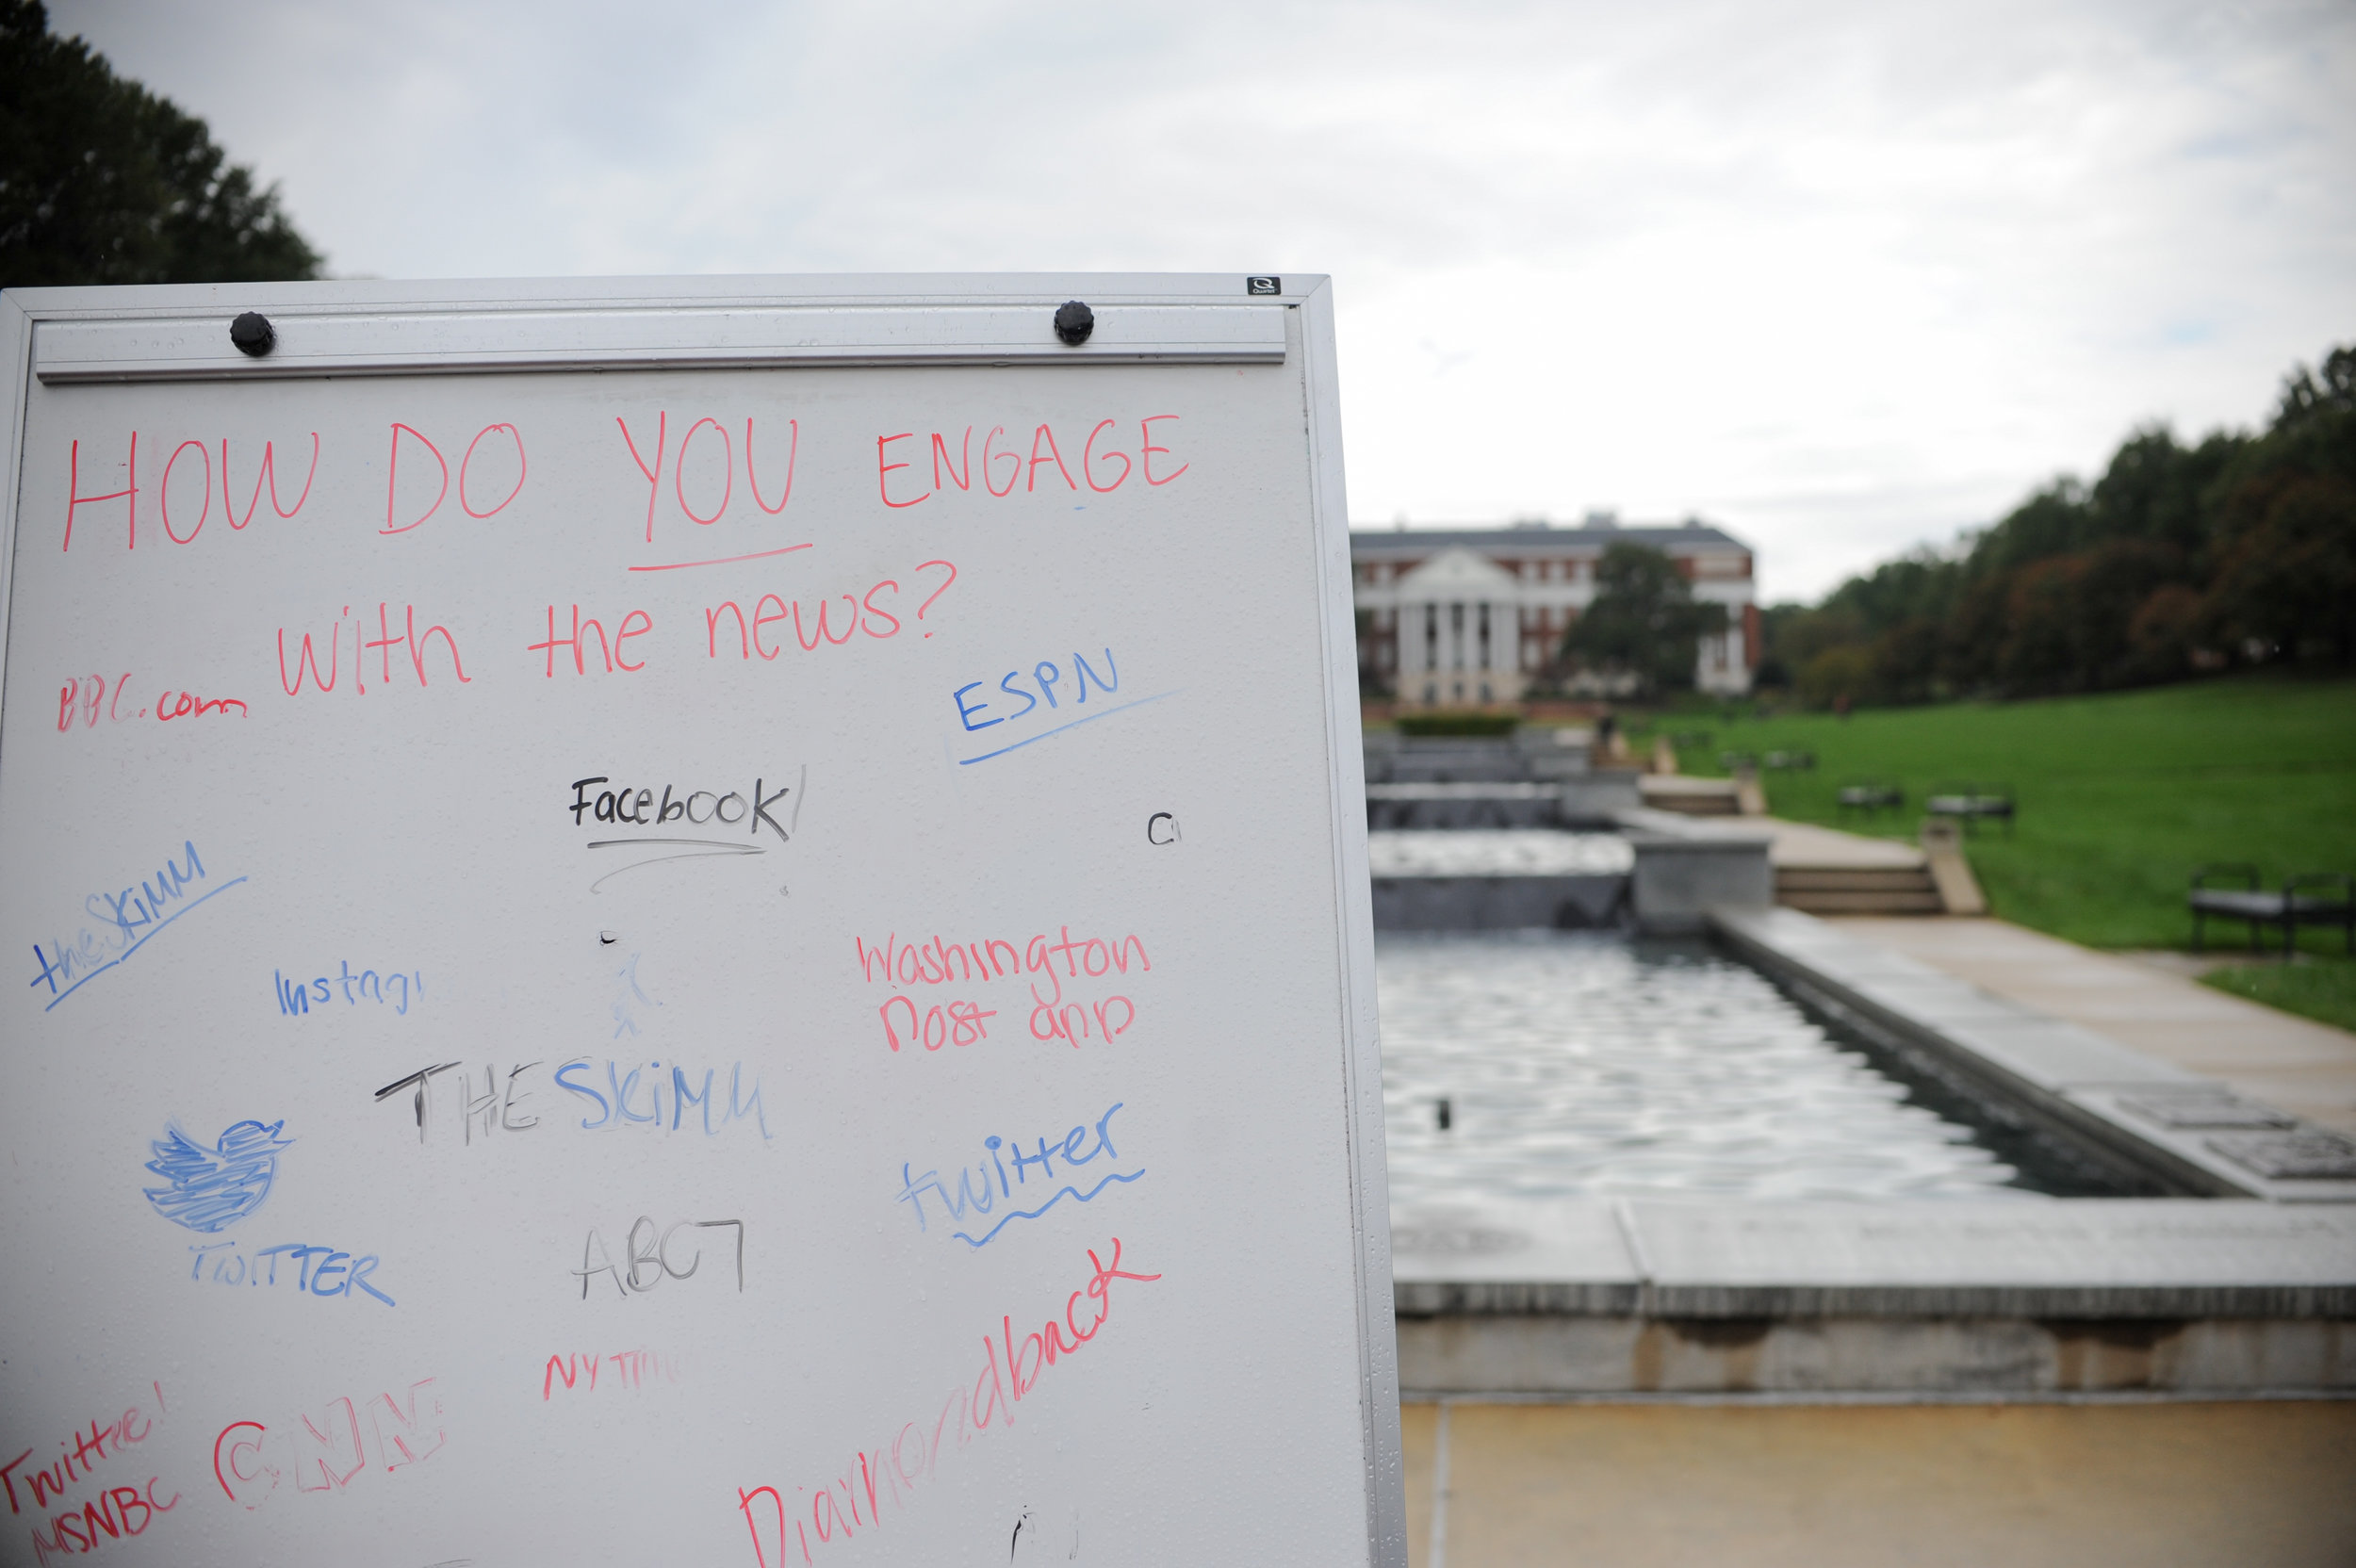 HOW DO YOU ENGAGE
with the news?
BBC.com
ESPN
Facebook
theSKIMM
Instag
Washington
Post app
THE SKIMM
twitter
TWITTER
ABC7
NY Tim
Diamondback
Twitter!
CNN
MSNBC